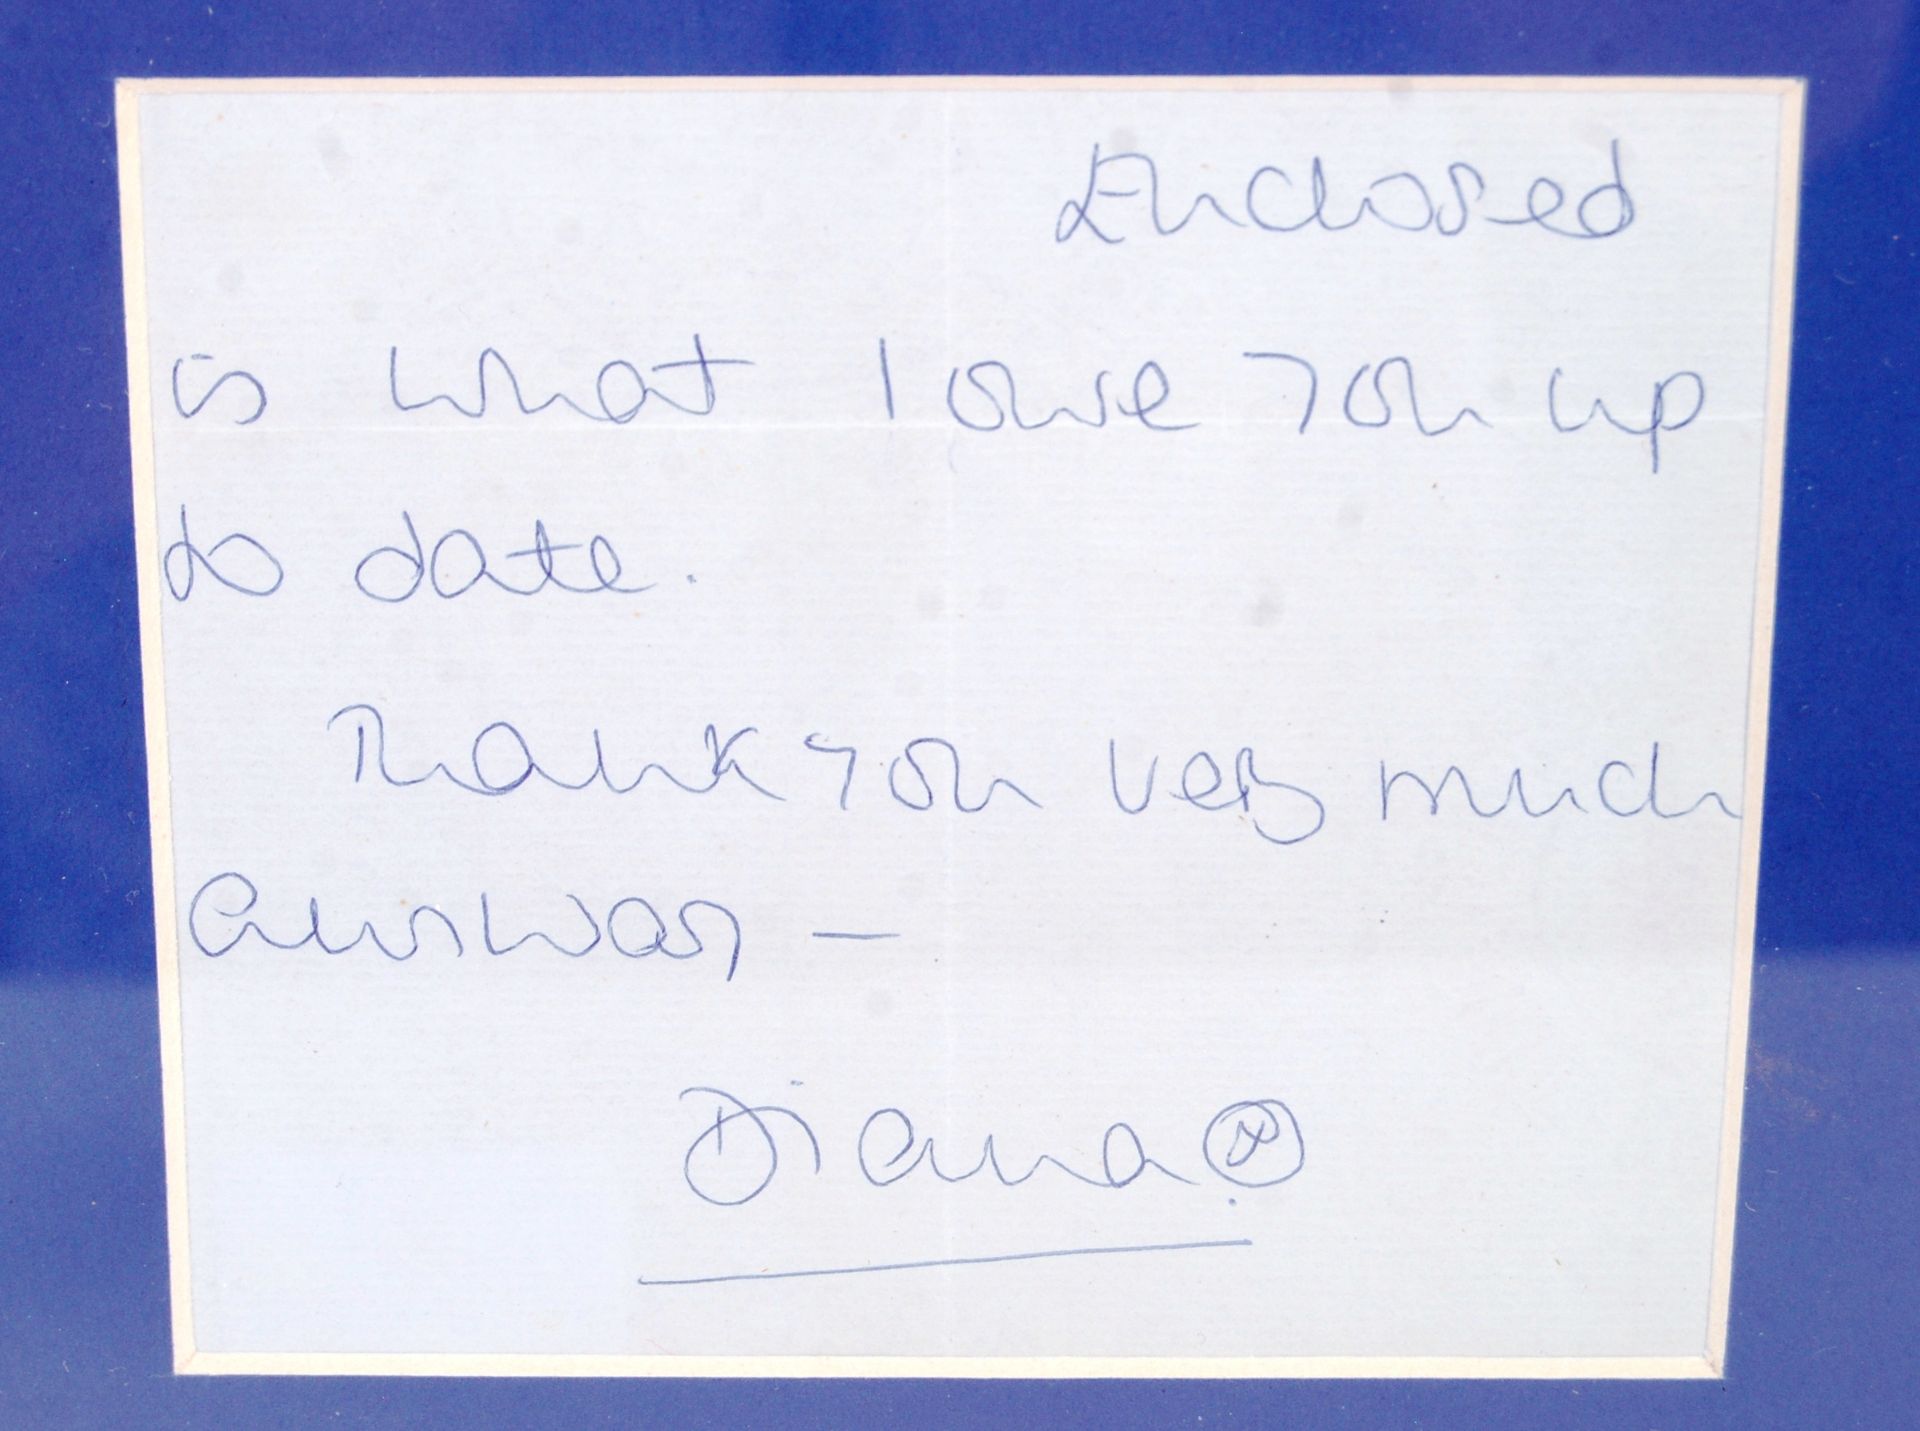 Enclosed
is what I owe you up
to date.
Thank you very much
anyway —
Diana